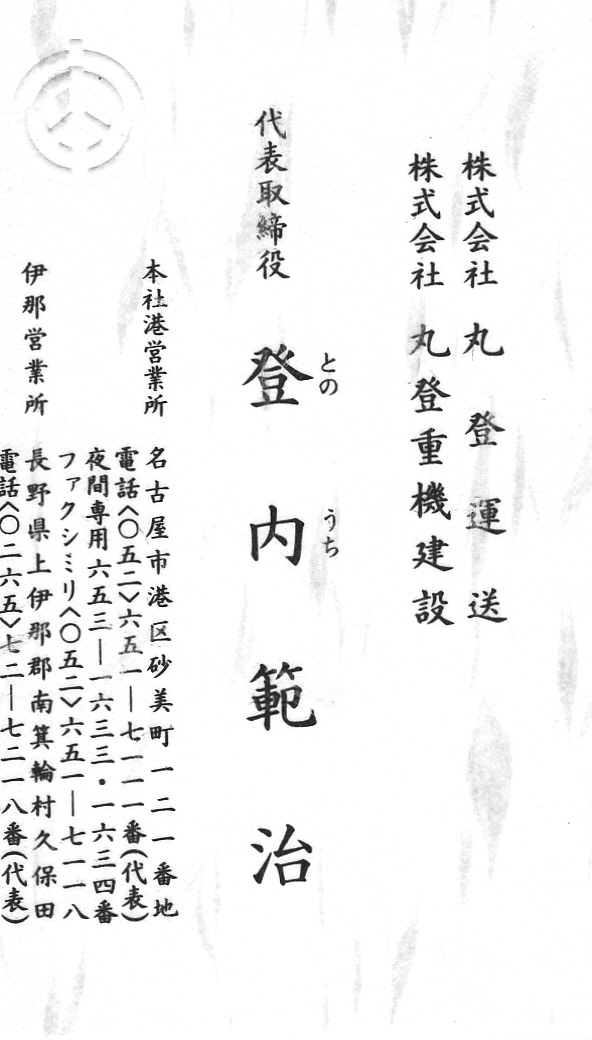 株式会社 丸登運送
株式会社 丸登重機建設
代表取締役 登内範治
との うち
本社港営業所 名古屋市港区砂美町一二一番地
電話〈〇五二〉六五一―七一一一番(代表)
夜間専用六五三―一六三三・一六三四番
ファクシミリ〈〇五二〉六五一―七一一八
伊那営業所 長野県上伊那郡南箕輪村久保田
電話〈〇二六五〉七二―七二一八番(代表)